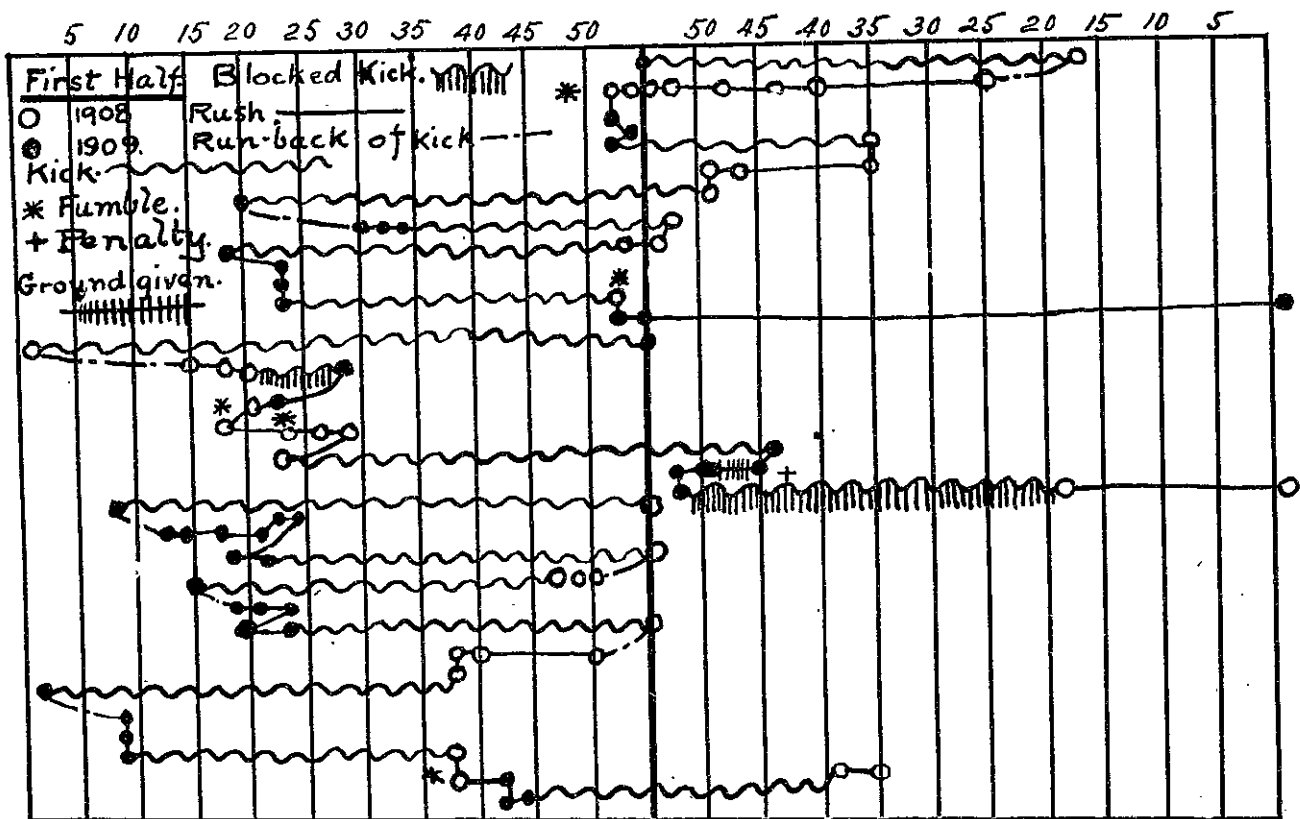 5 10 15 20 25 30 35 40 45 50 50 45 40 35 30 25 20 15 10 5
First Half. Blocked Kick.
1908 Rush
1909. Run-back of kick
Kick.
* Fumble.
+ Penalty.
Ground given.